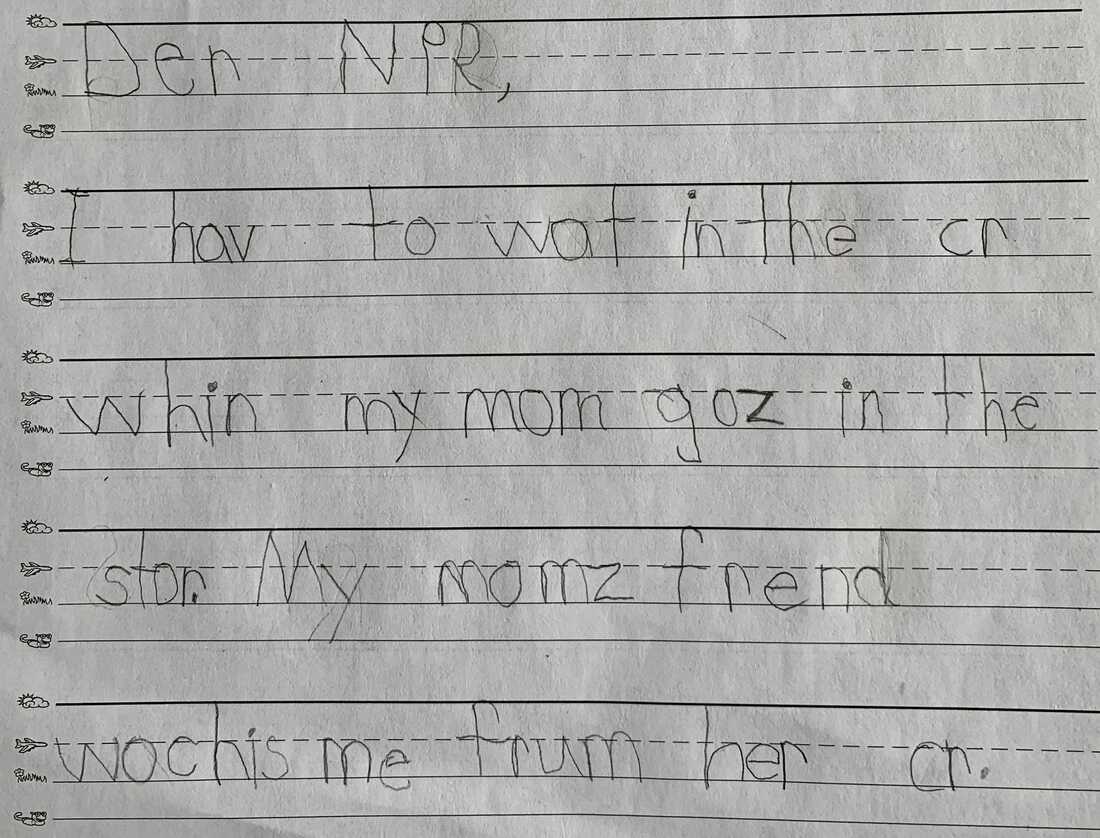 Der NPR,
I hav to wat in the cr
whin my mom goz in the
stor. My momz frend
wochis me frum her cr.